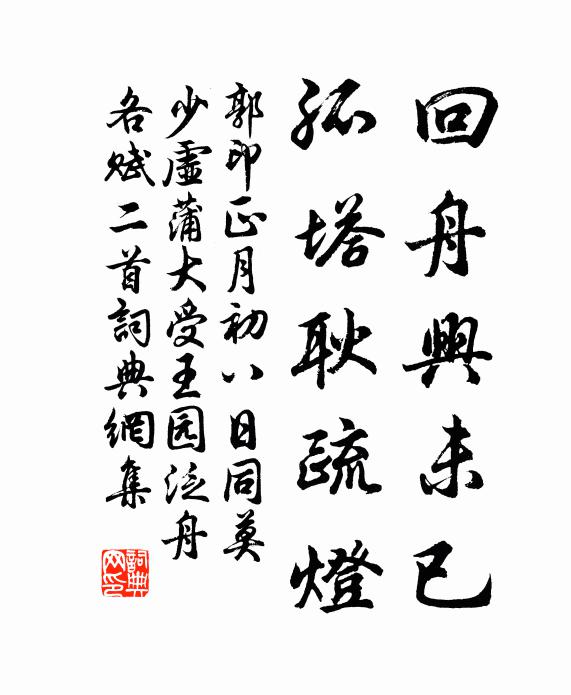 回舟興未已
孤塔耿疏燈
郭印正月初八日同莫
少虛蒲大受王园泛舟
各赋二首詞典網集
詞典网印